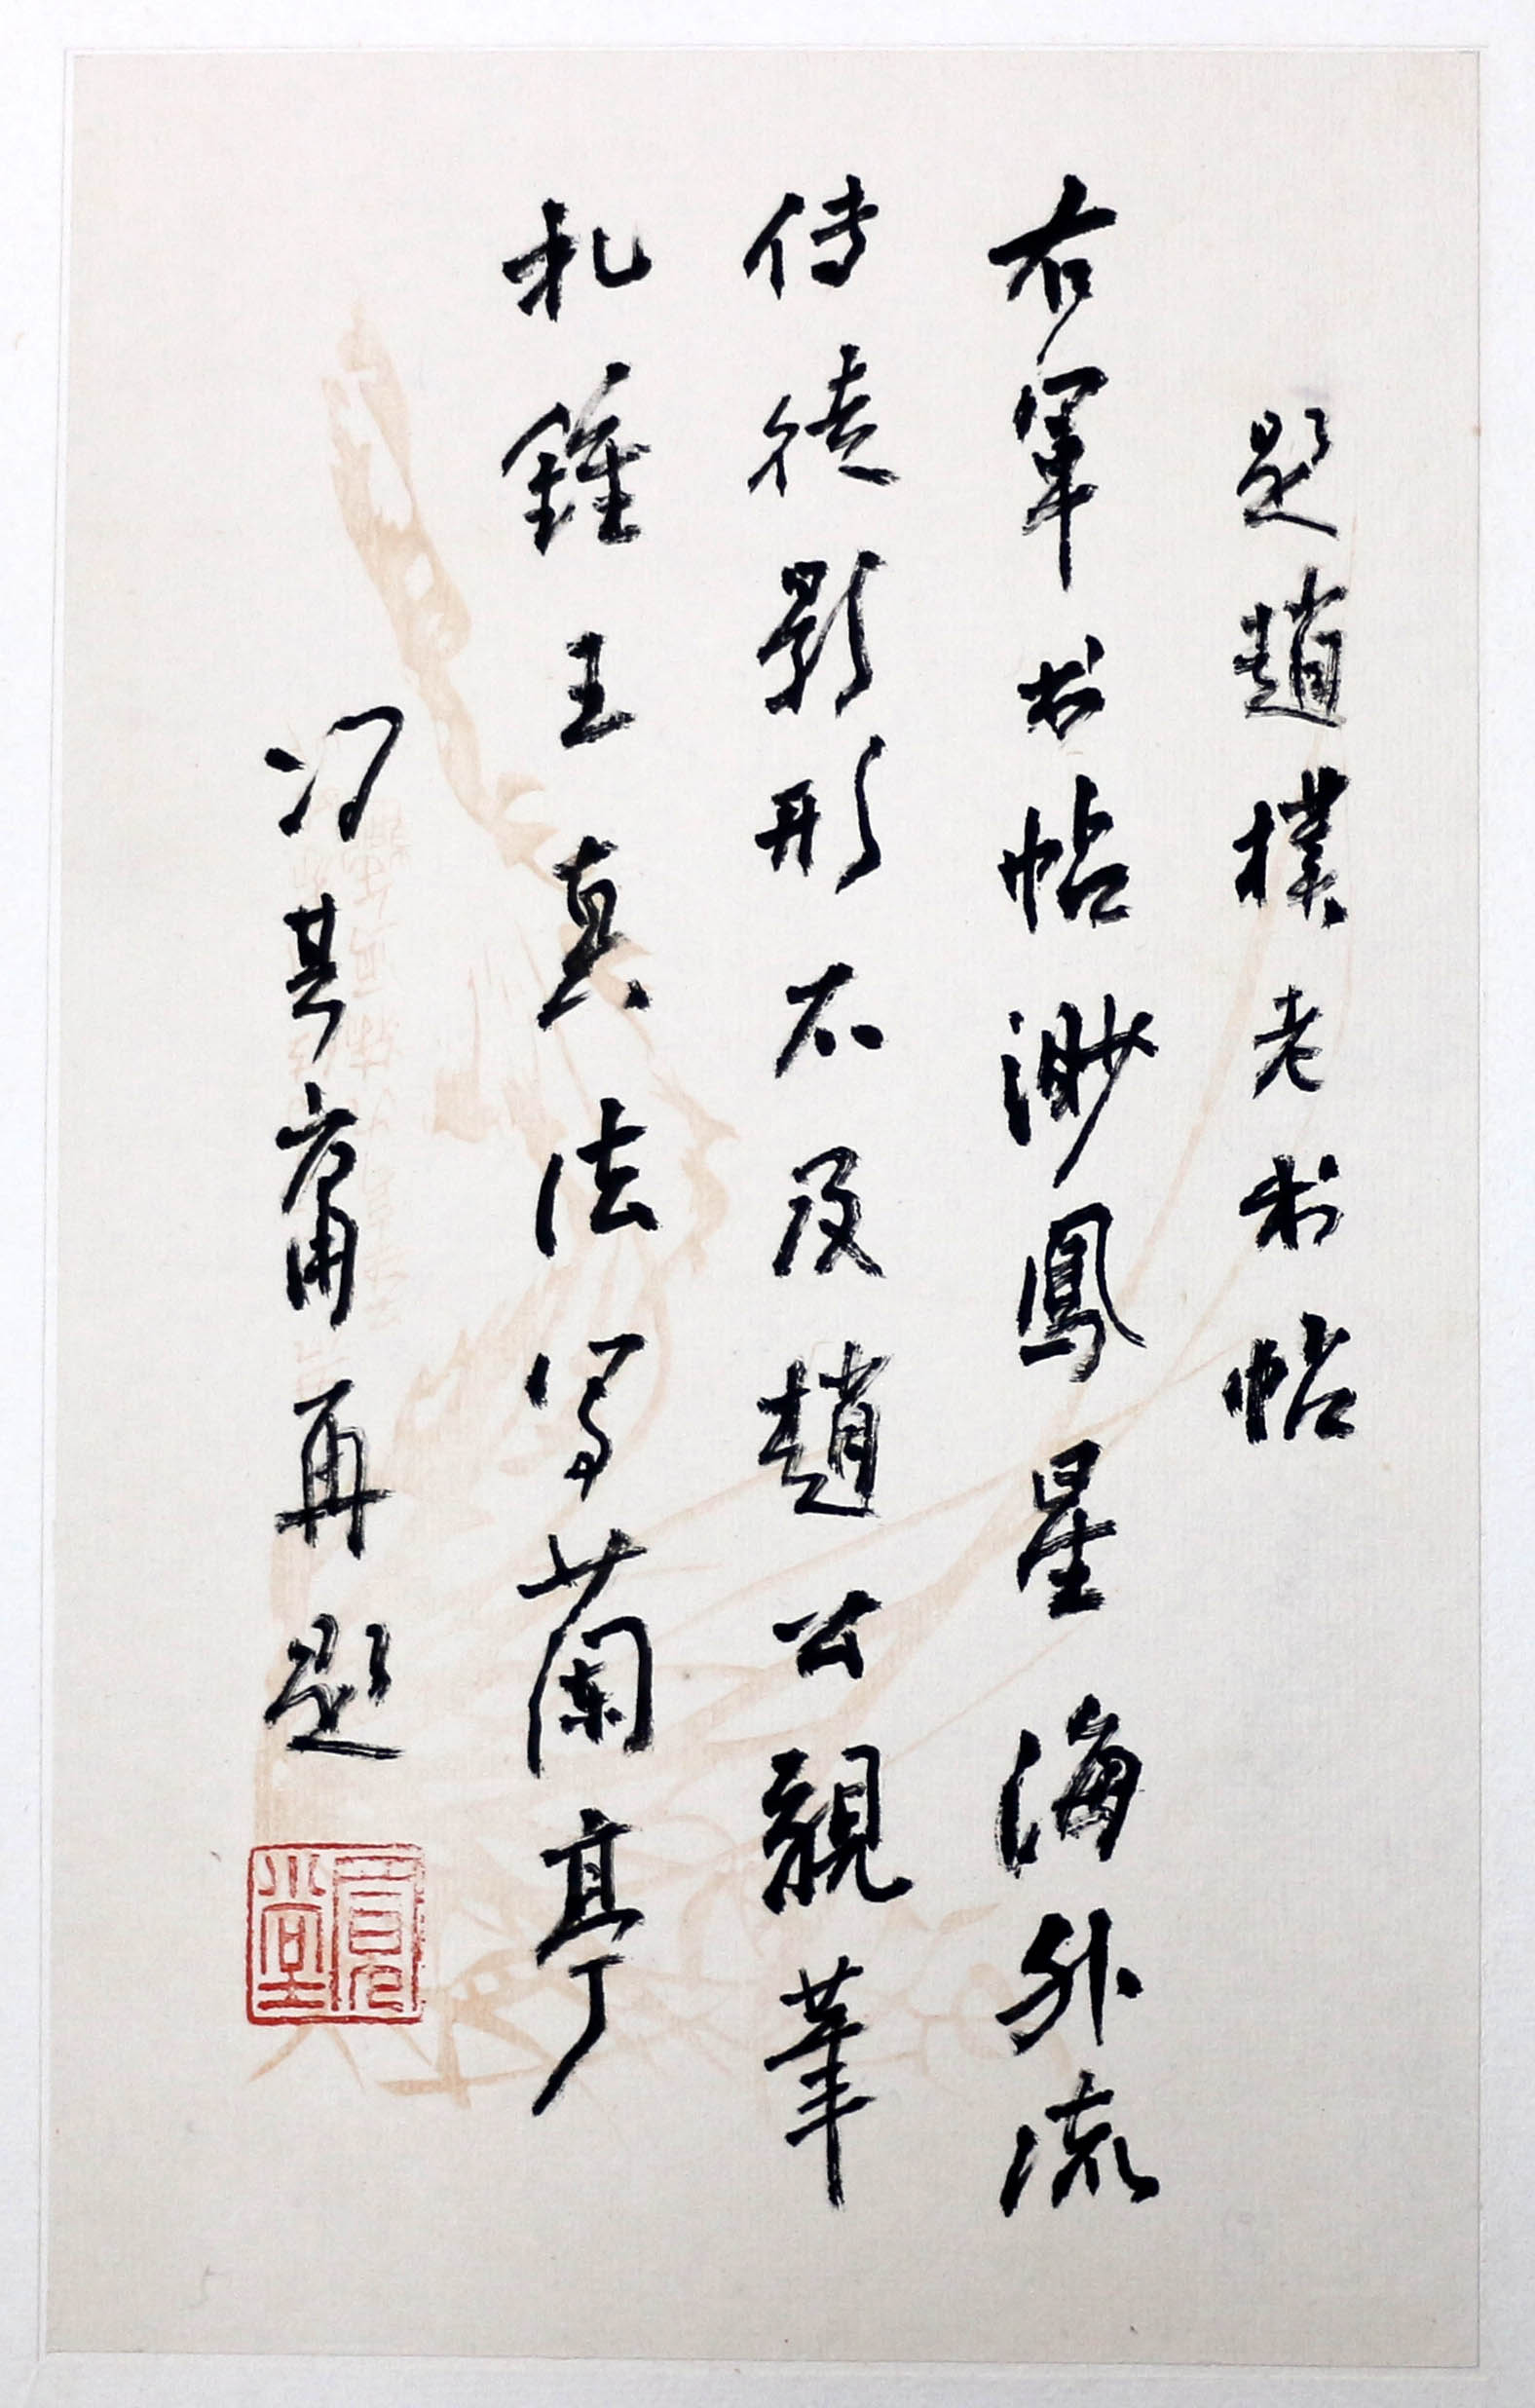 題趙樸老書帖
右軍書帖渺鳳星海外流
傳徒影形不及趙公親筆
札鍾王真法寫蘭亭
馮其庸再題
寬堂